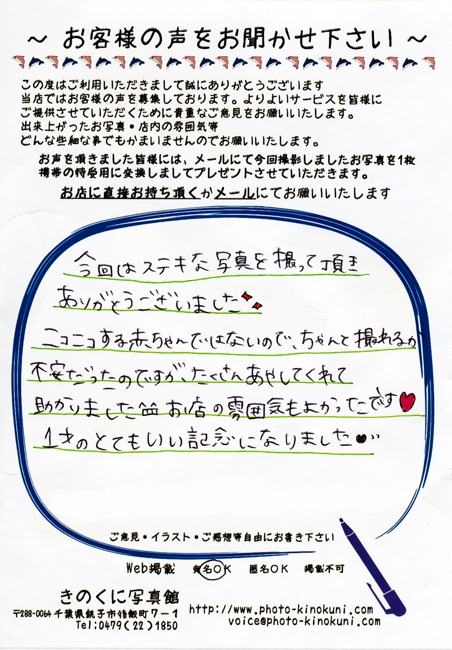 ～ お客様の声をお聞かせ下さい ～
この度はご利用いただきまして誠にありがとうございます
当店ではお客様の声を募集しております。よりよいサービスを皆様に
ご提供させていただくために貴重なご意見をお願いいたします。
出来上がったお写真・店内の雰囲気等
どんな些細な事でもかまいませんのでお願いいたします。
お声を頂きました皆様には、メールにて今回撮影しましたお写真を1枚
携帯の待受用に変換しましてプレゼントさせていただきます。
お店に直接お持ち頂くかメールにてお願いいたします
今回はステキな写真を撮って頂き
ありがとうございました
ニコニコする赤ちゃんではないので、ちゃんと撮れるか
不安だったのですが、たくさんあやしてくれて
助かりました お店の雰囲気もよかったです♥
1才のとてもいい記念になりました
ご意見・イラスト・ご感想等自由にお書き下さい
Web掲載 実名OK 匿名OK 掲載不可
きのくに写真館
〒288-0064 千葉県銚子市後飯町7-1
Tel:0479(22)1850
http://www.photo-kinokuni.com/
voice@photo-kinokuni.com